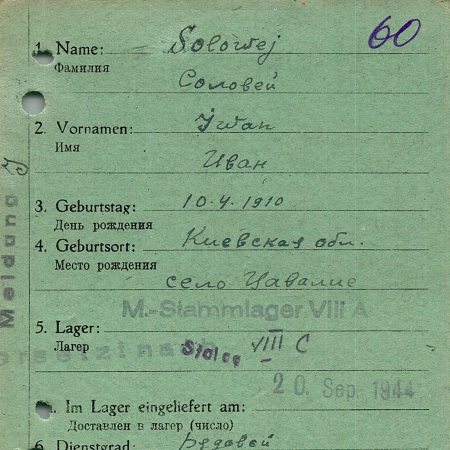 60
1. Name: Solowej
Фамилия
Соловей
2. Vornamen: Iwan
Имя
Иван
3. Geburtstag: 10.4.1910
День рождения
4. Geburtsort: Киевская обл.
Место рождения
село
M.-Stammlager VIII A
5. Lager:
Лагерь
Stalag VIII C
20. Sep. 1944
Im Lager eingeliefert am:
Доставлен в лагерь (число)
6. Dienstgrad: Рядовой
Meldung J